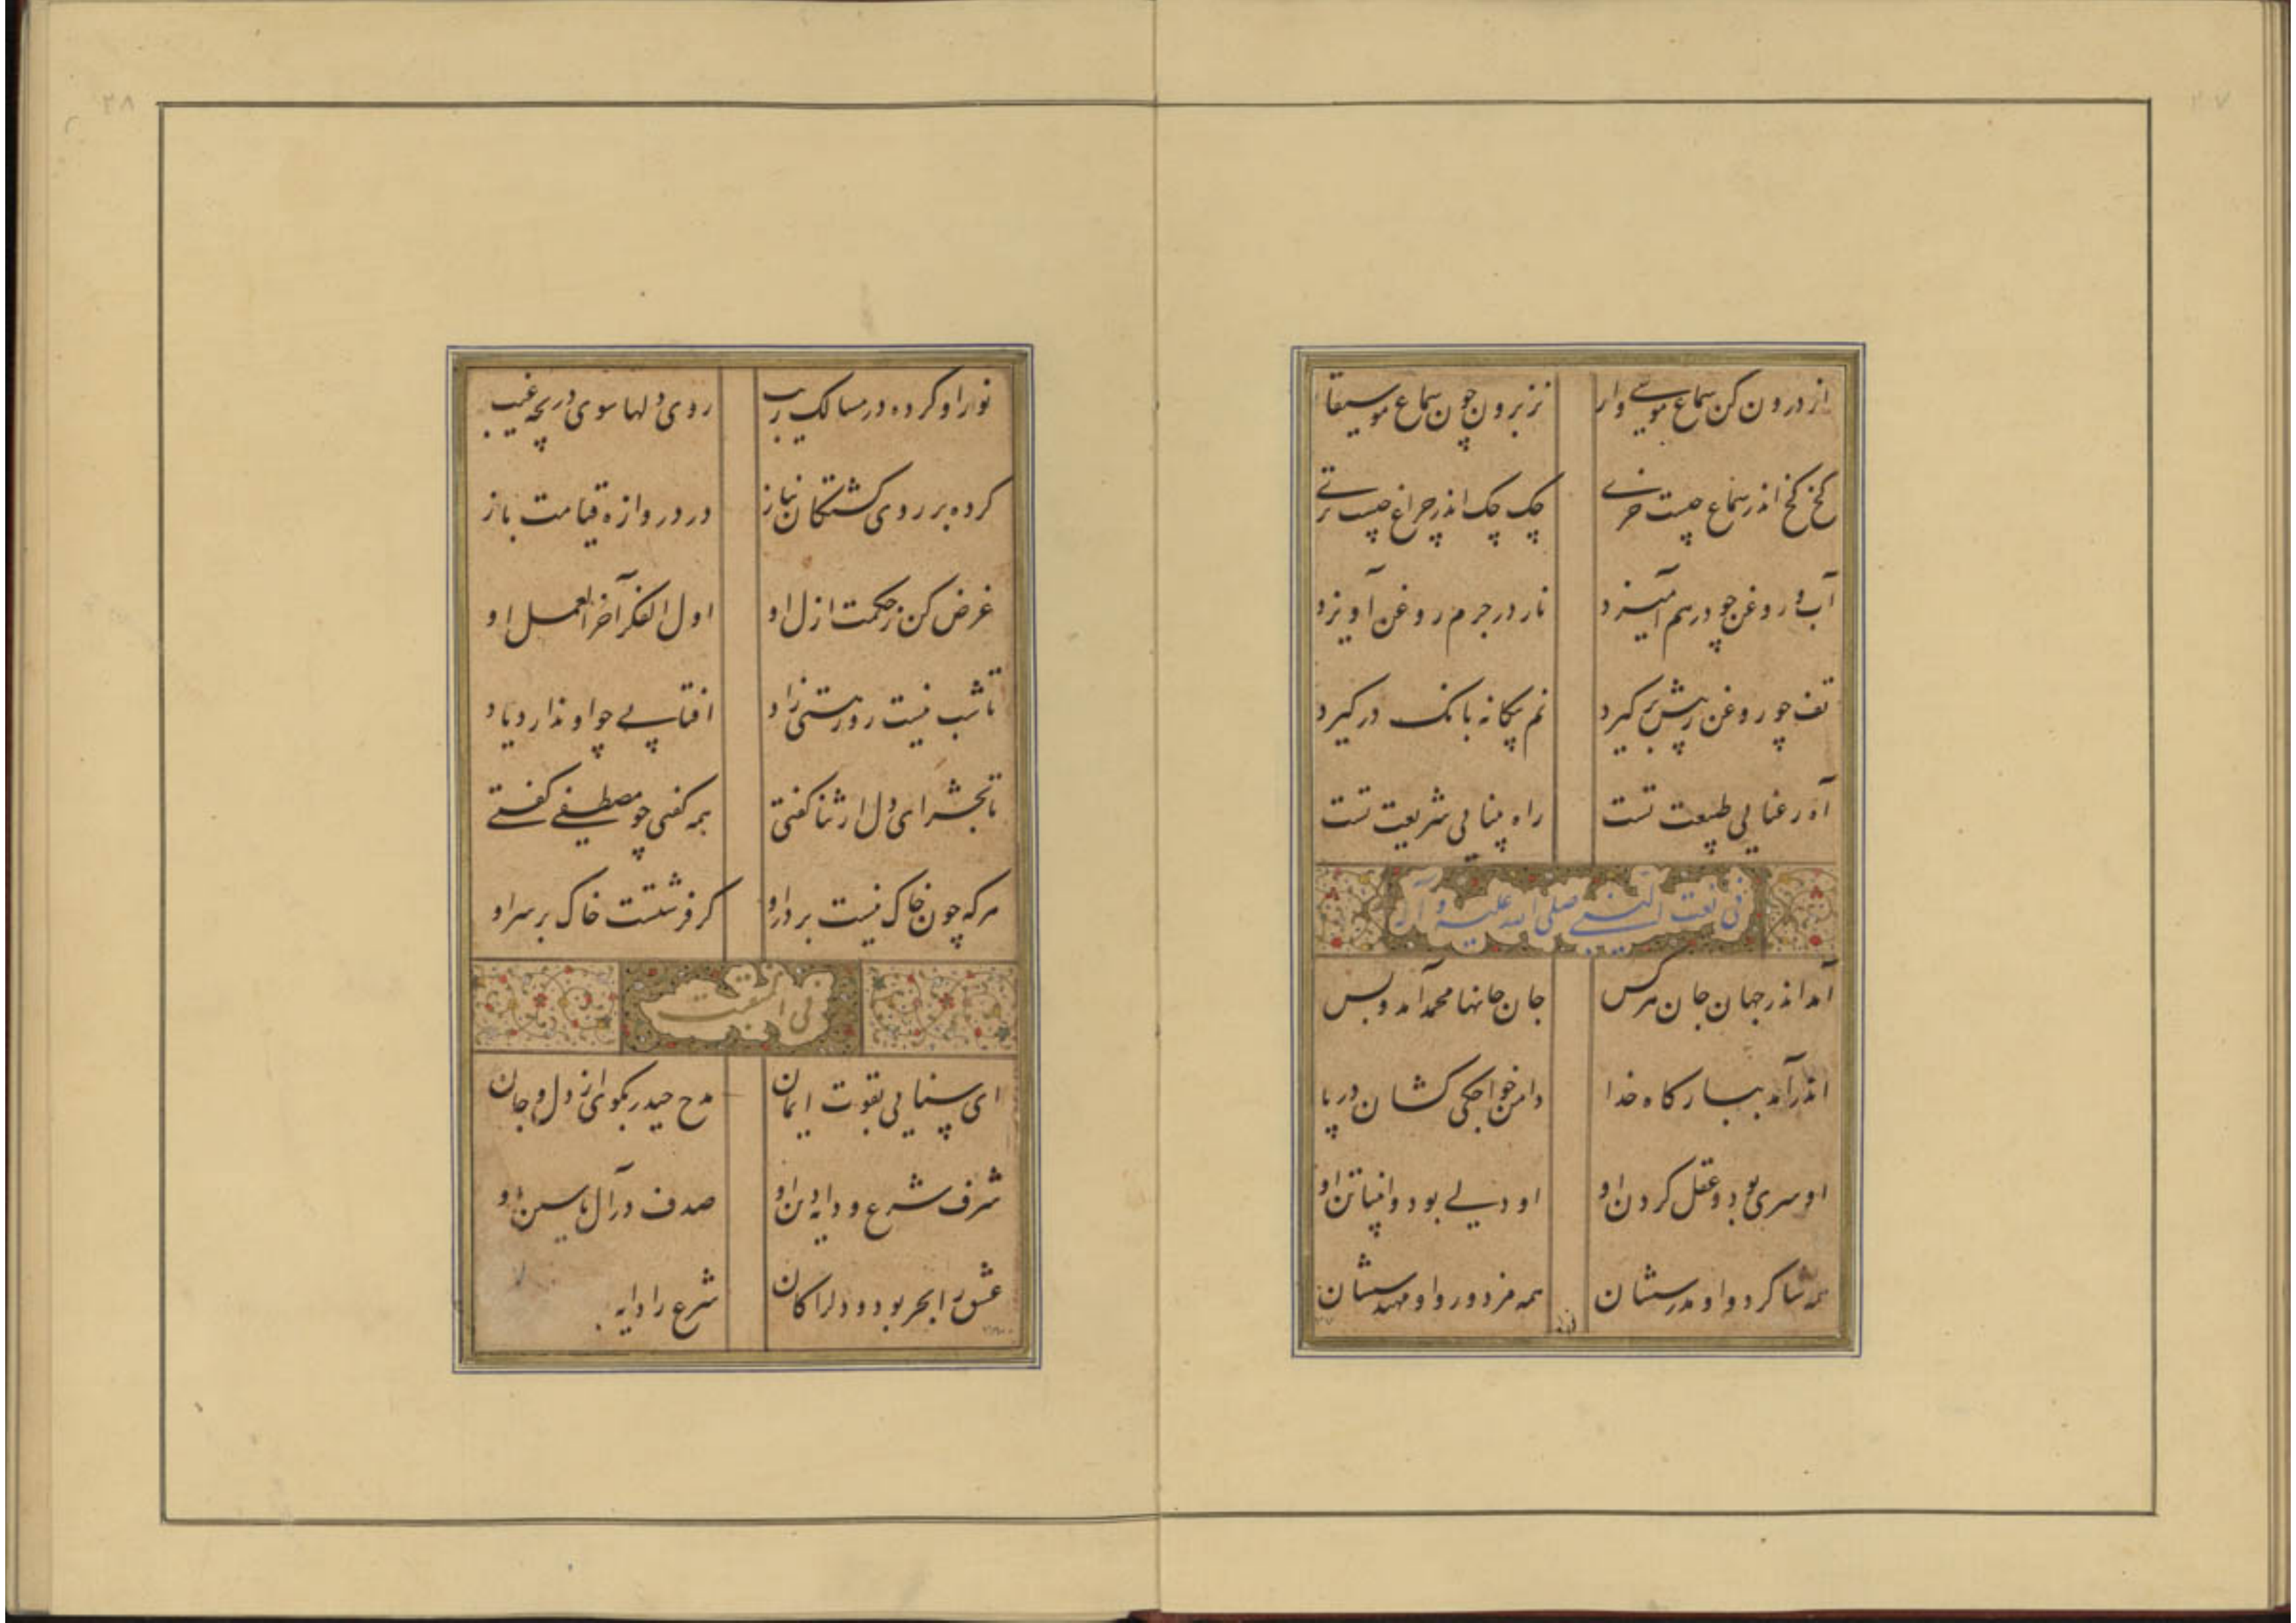 ۲۷
از درون کن سماع موسی وار نز برون چون سماع موسیقار
کخ کخ اندر سماع چیست خری چک چک اندر چراغ چیست تری
آب و روغن چو درهم آمیزد نار در جرم روغن آویزد
تف چو روغن ز پیش برگیرد نم بیگانه بانک درگیرد
آه رعنایی طبیعت تست راه بینایی شریعت تست
فی نعت النبی صلی الله علیه و آله
آمد اندر جهان جان هرکس جان جانها محمد آمد و بس
اندر آمد ببارگاه خدا دامن خواجگی کشان در پا
او سری بود و عقل گردن او او دلی بود و انبیا تن او
همه شاگرد و او مدرسشان همه مزدور و او مهندسشان
۲۸
نور او کرده در مسالک ریب روی دلها سوی دریچه غیب
کرده بر روی کشتگان نیاز در دروازه قیامت باز
غرض کن ز حکمت ازل او اول الفکر آخر العمل او
تا شب نیست روز هستی زاد افتابی چو او ندارد یاد
تا بحشر ای دل ار ثنا گفتی همه گفتی چو مصطفی گفتی
هرکه چون خاک نیست بر در او گر فرشتست خاک بر سر او
فی المنقبت
ای سنایی بقوت ایمان مدح حیدر بگوی از دل و جان
شرف شرع و دایه دین او صدف در آل یاسین او
عشق را بحر بود و دل را کان شرع را دایه